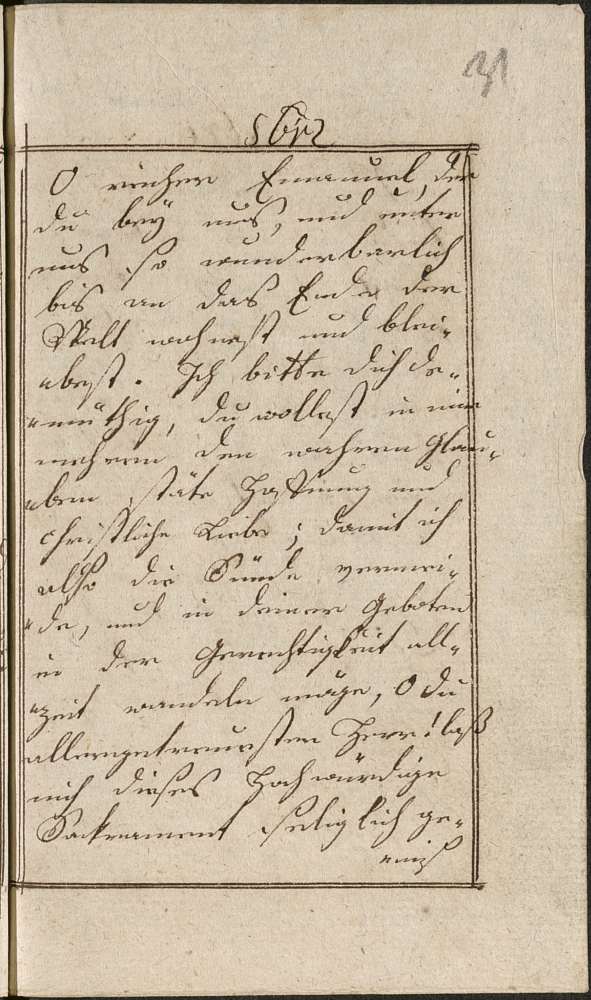 31
O reicher Emanuel, der
du bey uns, und unter
uns so wunderbarlich
bis an das Ende der
Welt wohnest und blei-
best. Ich bitte dich de-
müthig, du wollest in mir
mehren den wahren Glau-
ben, stäte Hoffnung und
christliche Liebe; damit ich
also die Sünde vermei-
de, und in deinen Geboten
in der Gerechtigkeit all-
zeit wandeln möge, O du
allergetreuesten Herr! laß
mich dieses Hochwürdige
Sackrament seliglich ge-